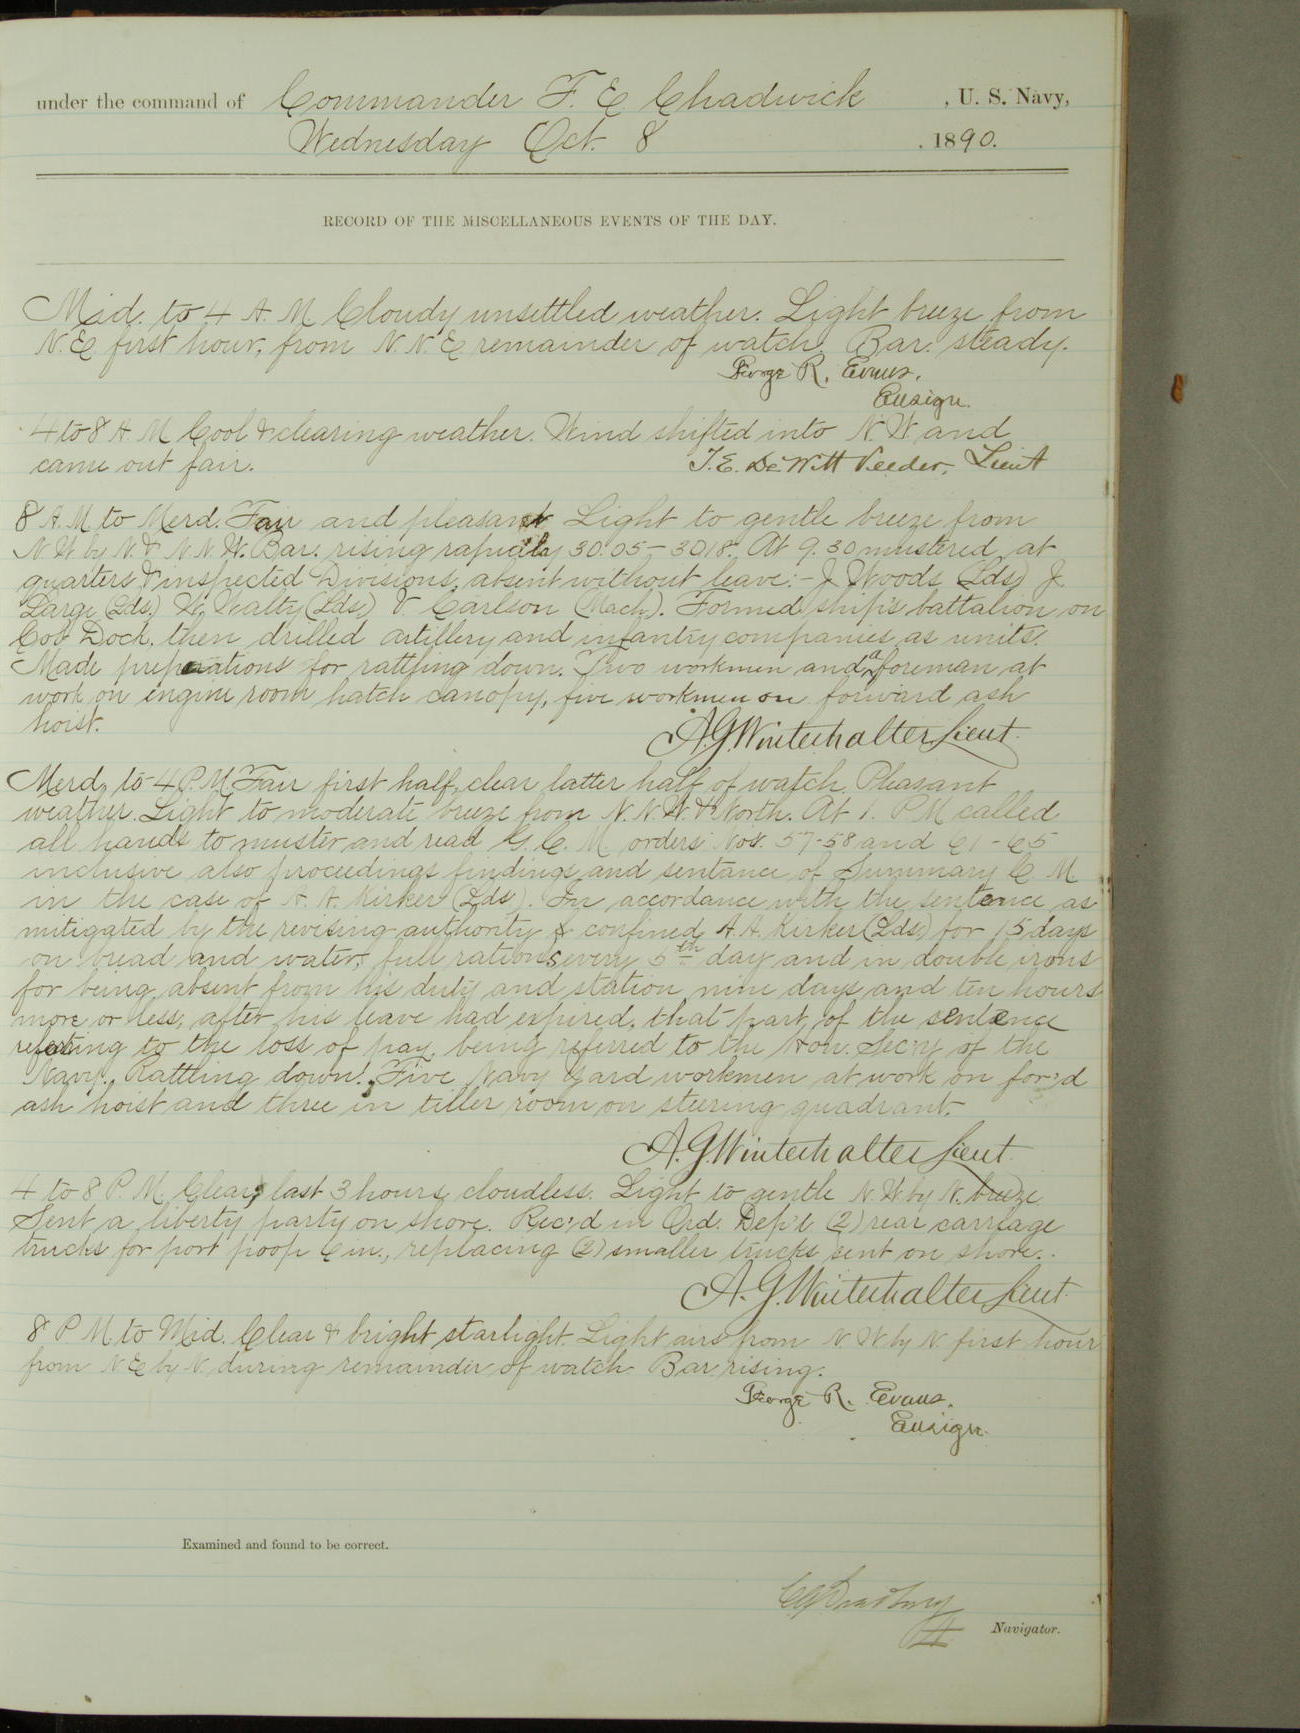 under the command of Commander F. E. Chadwick, U. S. Navy,
Wednesday Oct. 8, 1890.
RECORD OF THE MISCELLANEOUS EVENTS OF THE DAY.
Mid. to 4 A. M. Cloudy unsettled weather. Light breeze from
N. E. first hour, from N. N. E. remainder of watch. Bar. steady.
George R. Evans,
Ensign.
4 to 8 A M Cool & clearing weather. Wind shifted into N. W and
came out fair. T. E. DeWitt Veeder, Lieut
8 A. M. to Merd. Fair and pleasant Light to gentle breeze from
N W by N. & N. N. W. Bar. rising rapidly 30.05 - 30.18. At 9.30 mustered at
quarters & inspected Divisions, absent without leave:- J. Woods (Lds) J.
Large (Lds.) W. Walty (Lds) V. Carlson (Mach). Formed ship's battalion on
Cob Dock, then drilled artillery and infantry companies as units.
Made preparations for rattling down. Two workmen and a foreman at
work on engine room hatch canopy, five workmen on forward ash
hoist. A. G. Winterhalter Lieut.
Merd. to 4 P. M. Fair first half, clear latter half of watch. Pleasant
weather. Light to moderate breeze from N. N. W. & North. At 1. P M called
all hands to muster and read G. C. M. orders Nos. 57-58 and 61-65
inclusive also proceedings findings and sentance of Summary C M
in the case of A. A. Kirker (Lds). In accordance with the sentence as
mitigated by the revising authority & confined A. A. Kirker (Lds) for 15 days
on bread and water, full rations every 5th day and in double irons
for being absent from his duty and station nine days and ten hours
more or less, after his leave had expired, that part of the sentence
relating to the loss of pay, being referred to the Hon. Sec'y of the
Navy. Rattling down. Five Navy Yard workmen at work on for'd
ash hoist and three in tiller room on steering quadrant.
A. G. Winterhalter Lieut.
4 to 8 P. M. Clear, last 3 hours cloudless. Light to gentle N. W by N. breeze.
Sent a liberty party on shore. Rec'd in Ord. Dep't (2) rear carriage
trucks for port poop 6 in., replacing (2) smaller trucks sent on shore.
A. G. Winterhalter Lieut.
8 P M to Mid. Clear & bright starlight. Light airs from N. W by N. first hour
from N E by N. during remainder of watch Bar rising.
George R. Evans,
Ensign.
Examined and found to be correct.
Navigator.